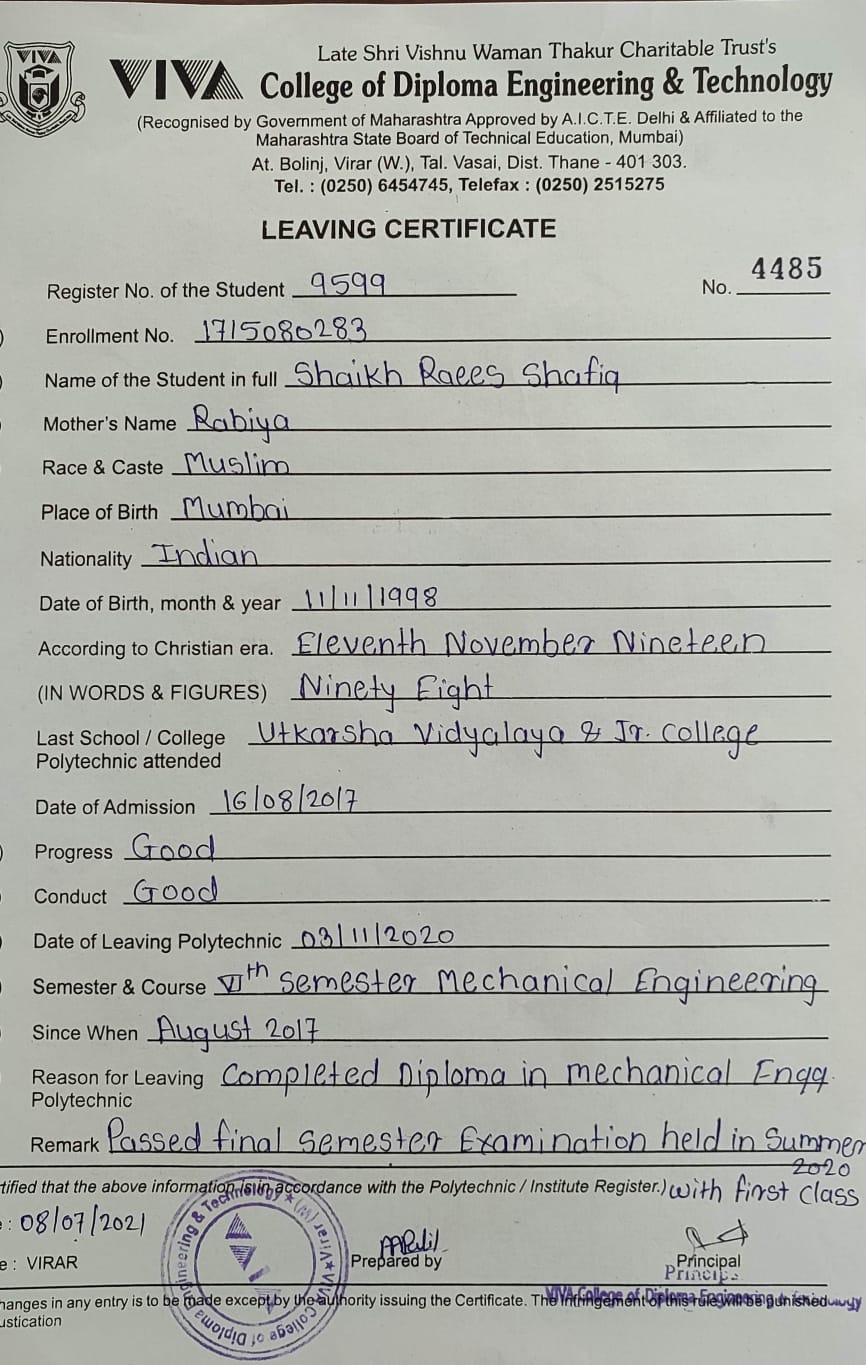 VIVA
Late Shri Vishnu Waman Thakur Charitable Trust's
VIVA College of Diploma Engineering & Technology
(Recognised by Government of Maharashtra Approved by A.I.C.T.E. Delhi & Affiliated to the
Maharashtra State Board of Technical Education, Mumbai)
At. Bolinj, Virar (W.), Tal. Vasai, Dist. Thane - 401 303.
Tel. : (0250) 6454745, Telefax : (0250) 2515275
LEAVING CERTIFICATE
Register No. of the Student 9599 No. 4485
Enrollment No. 1715080283
Name of the Student in full Shaikh Raees Shafiq
Mother's Name Rabiya
Race & Caste Muslim
Place of Birth Mumbai
Nationality Indian
Date of Birth, month & year 11/11/1998
According to Christian era. Eleventh November Nineteen
(IN WORDS & FIGURES) Ninety Eight
Last School / College Utkarsha Vidyalaya & Jr. College
Polytechnic attended
Date of Admission 16/08/2017
Progress Good
Conduct Good
Date of Leaving Polytechnic 03/11/2020
Semester & Course VIth Semester Mechanical Engineering
Since When August 2017
Reason for Leaving Completed Diploma in mechanical Engg.
Polytechnic
Remark Passed final Semester Examination held in Summer
2020
tified that the above information is in accordance with the Polytechnic / Institute Register.) with first class
: 08/07/2021
e : VIRAR Prepared by Principal
Principal
hanges in any entry is to be made except by the authority issuing the Certificate. The infringement of this rule will be punished
ustication
VIVA College of Diploma Engineering & Technology (w) Virar
VIVA College of Diploma Engineering